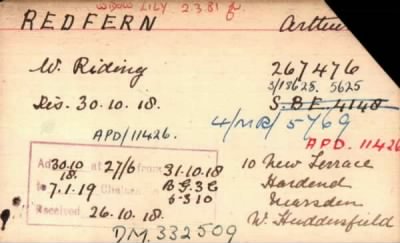 WIDOW LILY 2381 f
REDFERN Arthur
W. Riding 267476
3/18625. 5625
Dis. 30.10.18. S.B.F. 4148
4/MR/5769
APD/11426. APD. 11426
Ad 30.10 18 at 27/6 from 31.10.18
to 7.1.19 Chelsea B.G.3.C
6-310
Received 26.10.18
10 New Terrace
Hardend
Marsden
W. Huddersfield
DM.332509